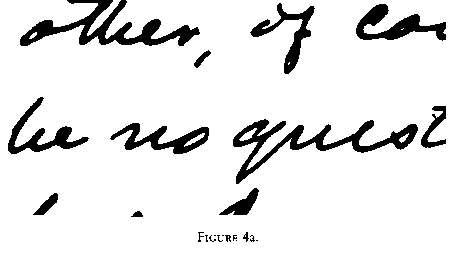 other, of co
be no quest
FIGURE 4a.